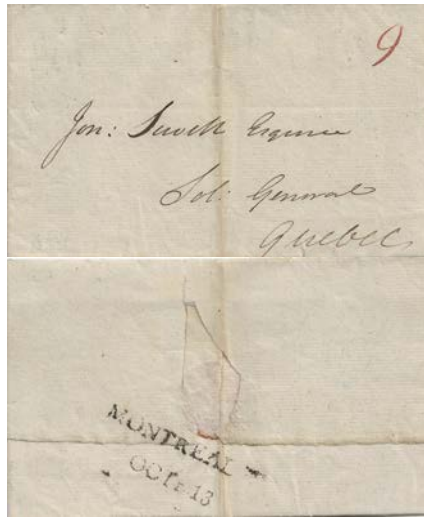 9
Jon: Sewell Esquire
Sol: General
Quebec
MONTREAL
OCTR 13